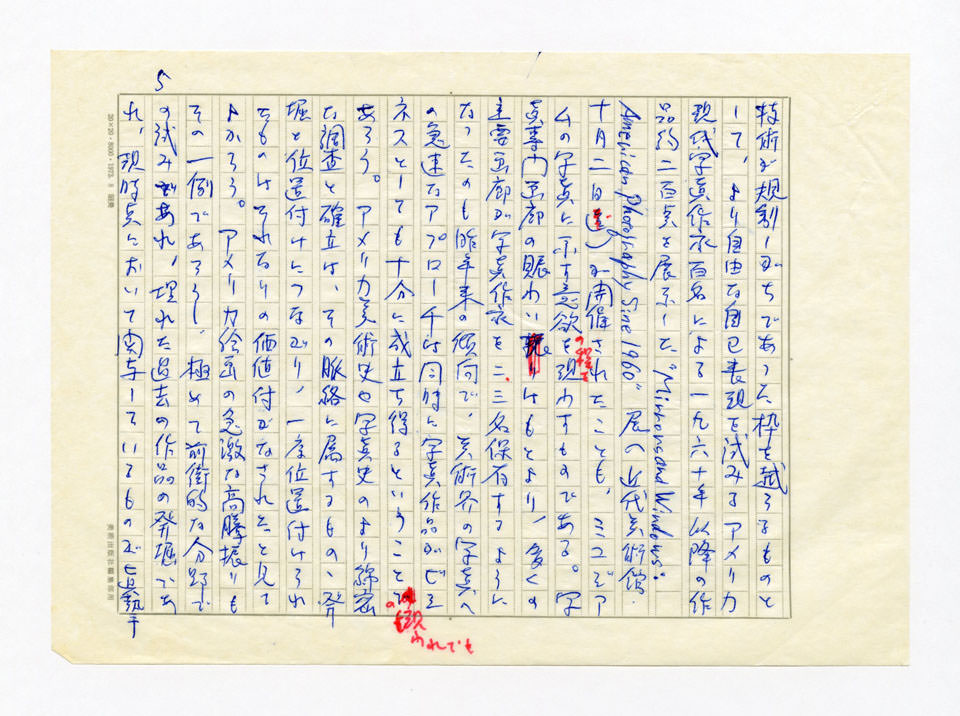 技術が規制しがちであった枠を越えるものと
して、より自由な自己表現を試みるアメリカ
現代写真作家百名による一九六十年以降の作
品約二百点を展示した"Mirrors and Windows:
American Photography Sine 1960"展(近代美術館・
十月二日迄)が開催されたことも、ミュゼア
ムの写真に示す意欲の程を現わすものである。写
真専門画廊の賑わい振りはもとより、多くの
主要画廊が写真作家を二、三名保有するように
なったのも昨年来の傾向で、美術界の写真へ
の急速なアプローチは同時に写真作品がビジ
ネスとしても十分に成立ち得るということの現われでも
あろう。アメリカ美術史や写真史のより綿密
な調査と確立は、その脈絡に属するもの、発
堀と位置付けにつながり、一度位置付けられ
たものはそれなりの価値付がなされたと見て
よかろう。アメリカ絵画の急激な高騰振りも
その一例であろうし、極めて前衛的な分野で
の試みであれ、埋れた過去の作品の発堀であ
れ、現時点において関与しているもので
5
20×20・8000・1973. 8
美術出版社編集部用